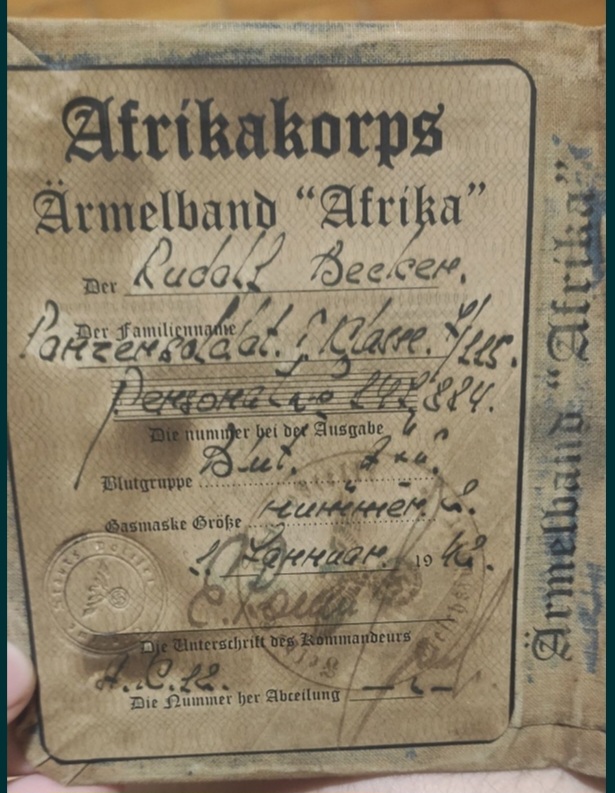 Afrikakorps
Ärmelband "Afrika"
Der Rudolf Becker.
Der Familienname
Panzersoldat. Klasse. /115.
Personal 884.
Die nummer bei der Ausgabe
Blutgruppe Blut.
Gasmaske Größe nummer. 2.
1 Jannuar. 19 42.
Die Unterschrift des Kommandeurs
A.C.12.
Die Nummer her Abceilung
Ärmelband "Afrika"